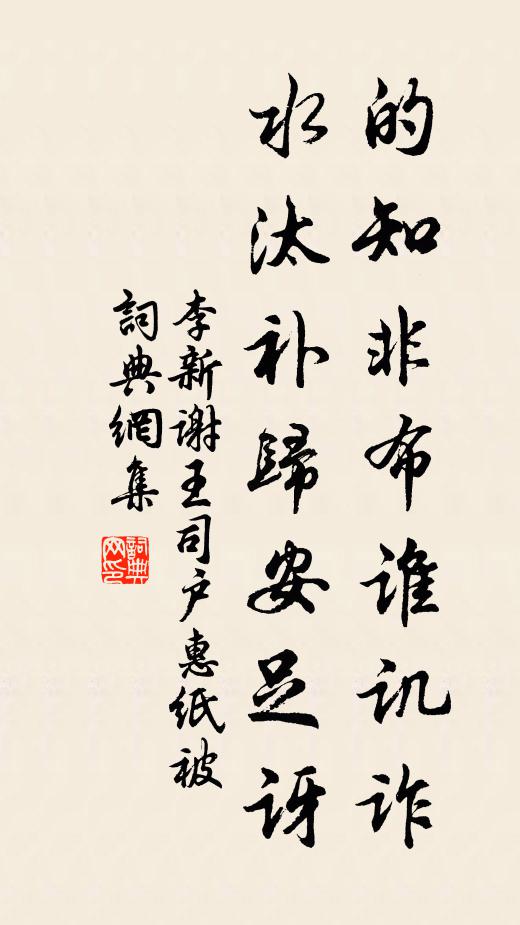 的知非布谁讥诈
水汰补歸安足讶
李新谢王司户惠纸被
詞典網集
詞典网印